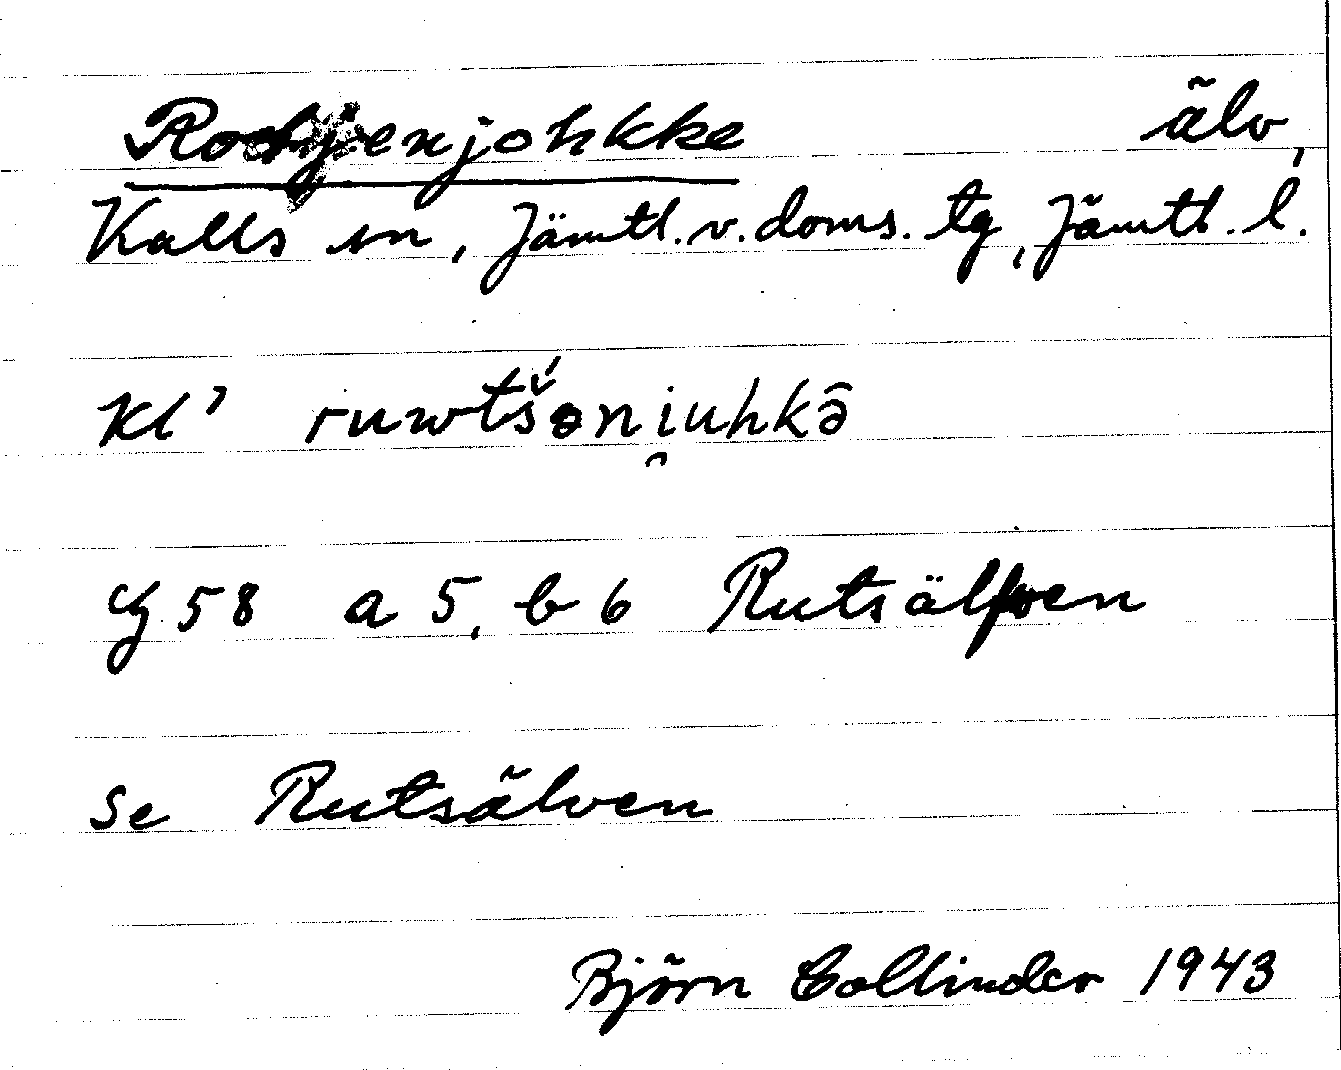 älv,
Kalls sn, Jämtl. v. doms. tg, Jämtl. l.
Kl'
G 58 a 5, b 6 Rutsälfven
Se Rutsälven
Björn Collinder 1943